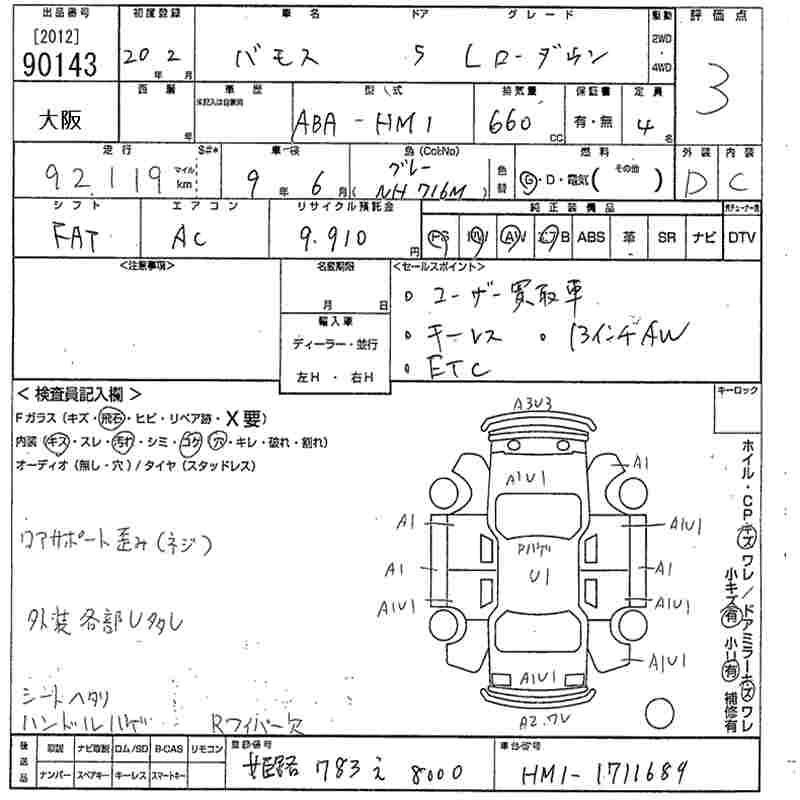 出品番号 初度登録 車名 ドア グレード 駆動 評価点
[2012]
90143
20年 2月 バモス 5 Lローダウン 2WD・4WD 3
大阪 西暦 年 車歴 未記入は自家用 型式 ABA-HM1 排気量 660 CC 保証書 有・無 定員 4名
走行 S#* 車検 色(Col:No) 色替 燃料 外装 内装
92,119 マイル km 9年 6月 グレー (NH716M) Ⓖ・D・電気( その他 ) D C
シフト エアコン リサイクル預託金 純正装備品 地デジチューナー類
FAT AC 9,910 円 PS PW AW エアB ABS 革 SR ナビ DTV
<注意事項> 名変期限 <セールスポイント>
月 日 ・ユーザー買取車
輸入車 ・キーレス ・13インチAW
ディーラー・並行 ・ETC
左H・右H
<検査員記入欄> キーロック
Fガラス(キズ・飛石・ヒビ・リペア跡・X要)
内装(キズ・スレ・汚れ・シミ・コゲ・穴・キレ・破れ・割れ)
オーディオ(無し・穴)/タイヤ(スタッドレス)
コアサポート歪み(ネジ)
外装各部U多し
シートヘタリ
ハンドルハゲ Rワイパー欠
A3U3
A1U1 A1
A1 A1U1
Pハゲ
U1
A1 A1
A1U1 A1U1
A1U1 A1U1
A2.ワレ
ホイル・CPキズワレ/ドアミラーキズワレ
小キズ有 小U有 補修有
後送品 取説 ナビ取説 ロム/SD B-CAS リモコン 登録番号 車台番号
ナンバー スペアキー キーレス スマートキー 姫路 783 え 8000 HM1-1711689